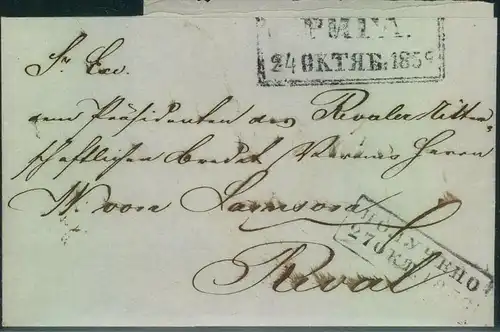 РИГА.
24 ОКТЯБ: 1859
Sr Exc.
dem Präsidenten des Revaler Ritter
schaftlichen Credit Vereins Herrn
W. von Samson
ПОЛУЧЕНО
27 ОКТ
Reval